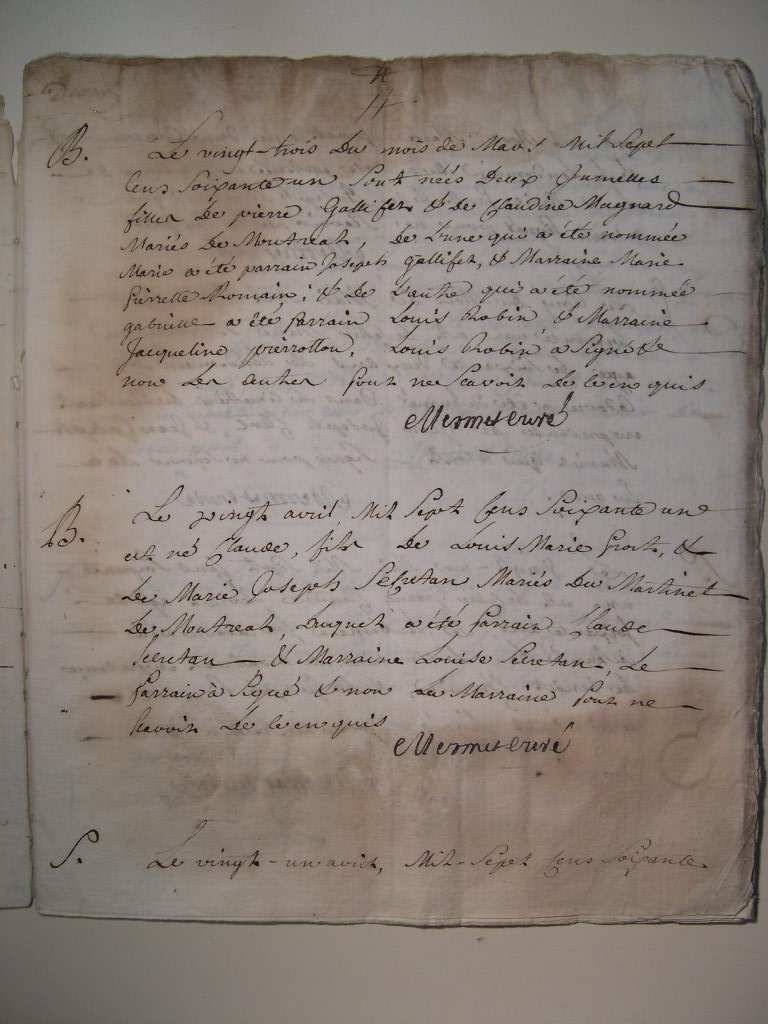 B. Le vingt-trois du mois de Mars Mil Sept
Cens Soixante un sont néés deux Jumelles
filles de pierre Gallifet & de Claudine Magnard
Mariés de Montreal, de L'une qui a été nommée
Marie a été parrain Joseph gallifet, & Marraine Marie
pierrette Romain; & de L'autre qui a été nommée
gabrielle a été parrain Louis Robin & Marraine
Jacqueline pierrotton, Louis Robin a Signé &
non Les autres pour ne Scavoir de ce enquis
Mermet curé
B. Le vingt avril, Mil Sept Cens Soixante un
est né Claude, fils de Louis Marie &
de Marie Joseph Secretan Mariés du Martinet
de Montreal, duquel a été parrain Claude
Secretan & Marraine Louise Secretan, Le
parrain à Signé & non La Marraine pour ne
Scavoir de ce enquis
Mermet curé
S. Le vingt-un avril, Mil Sept Cens Soixante